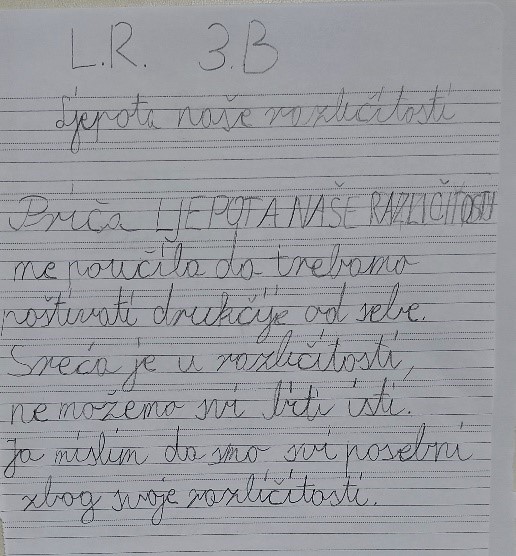 L.R. 3.B
Ljepota naše različitosti
Priča LJEPOTA NAŠE RAZLIČITOSTI
me poučila da trebamo
poštivati drukčije od sebe.
Sreća je u različitosti,
ne možemo svi biti isti.
Ja mislim da smo svi posebni
zbog svoje različitosti.